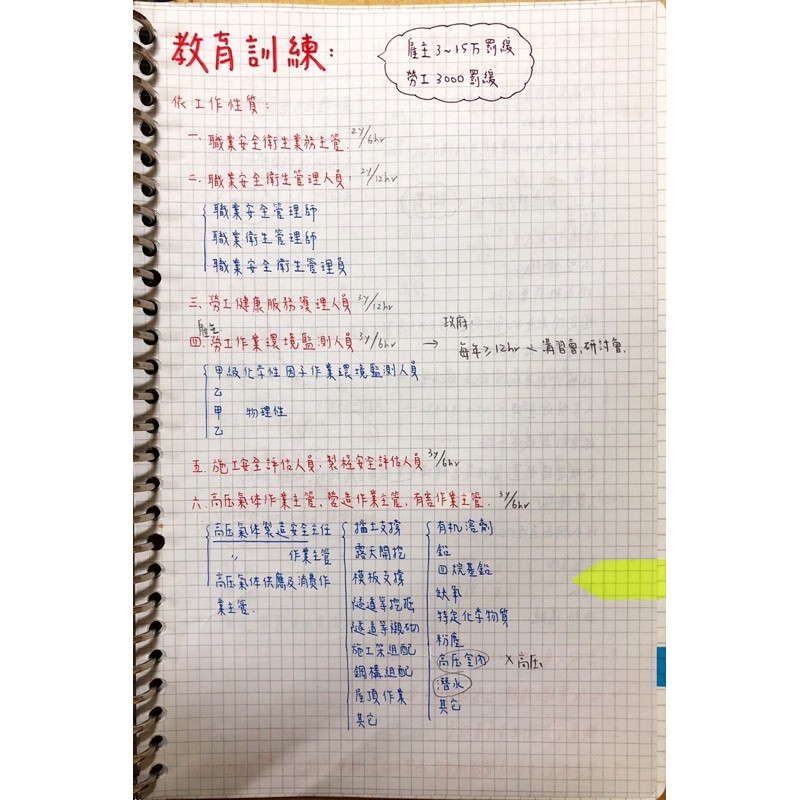 教育訓練：
雇主 3~15万罰緩
勞工 3000 罰緩
依工作性質：
一. 職業安全衛生業務主管. 2y/6hr
二. 職業安全衛生管理人員： 2y/12hr
職業安全管理師
職業衛生管理師
職業安全衛生管理員
三. 勞工健康服務護理人員 3y/12hr
雇主
四. 勞工作業環境監測人員 3y/6hr →
政府
每年≥12hr < 講習會、研討會.
甲級化学性因子作業環境監測人員
乙
甲 物理性
乙
五. 施工安全評估人員、製程安全評估人員 3y/6hr
六. 高压氣体作業主管、營造作業主管、有害作業主管. 3y/6hr
高压氣体製造安全主任
〃 作業主管
高压氣体供應及消費作
業主管.
擋土支撐
露天開挖
模板支撐
隧道等挖掘
隧道等襯砌
施工架組配
鋼構組配
屋頂作業
其它
有机溶劑
鉛
四烷基鉛
缺氧
特定化学物質
粉塵
高压室內 x高压
潛水
其它